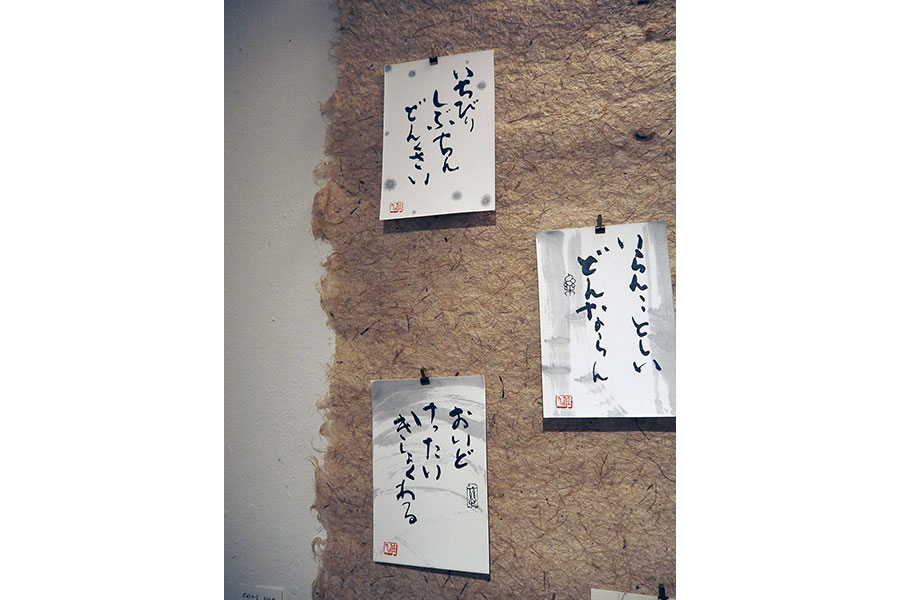 いちびり
しぶちん
どんくさい
いらんことしい
どんならん
おいど
けったい
きしょくわる